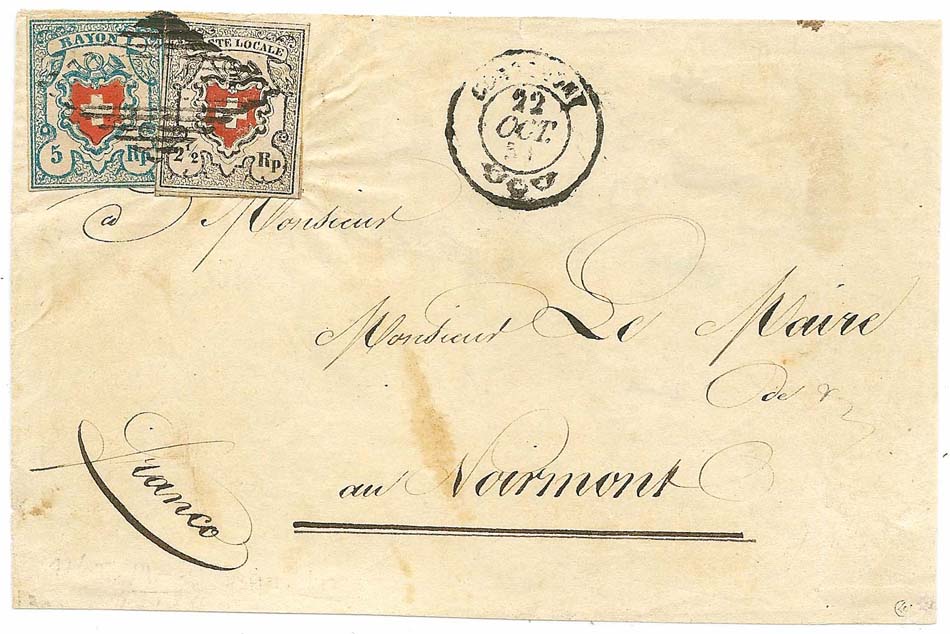 RAYON I
POSTE LOCALE
5 Rp.
2 1/2 Rp.
22
OCT.
à Monsieur
Monsieur Le Maire
de &
au Noirmont
Franco